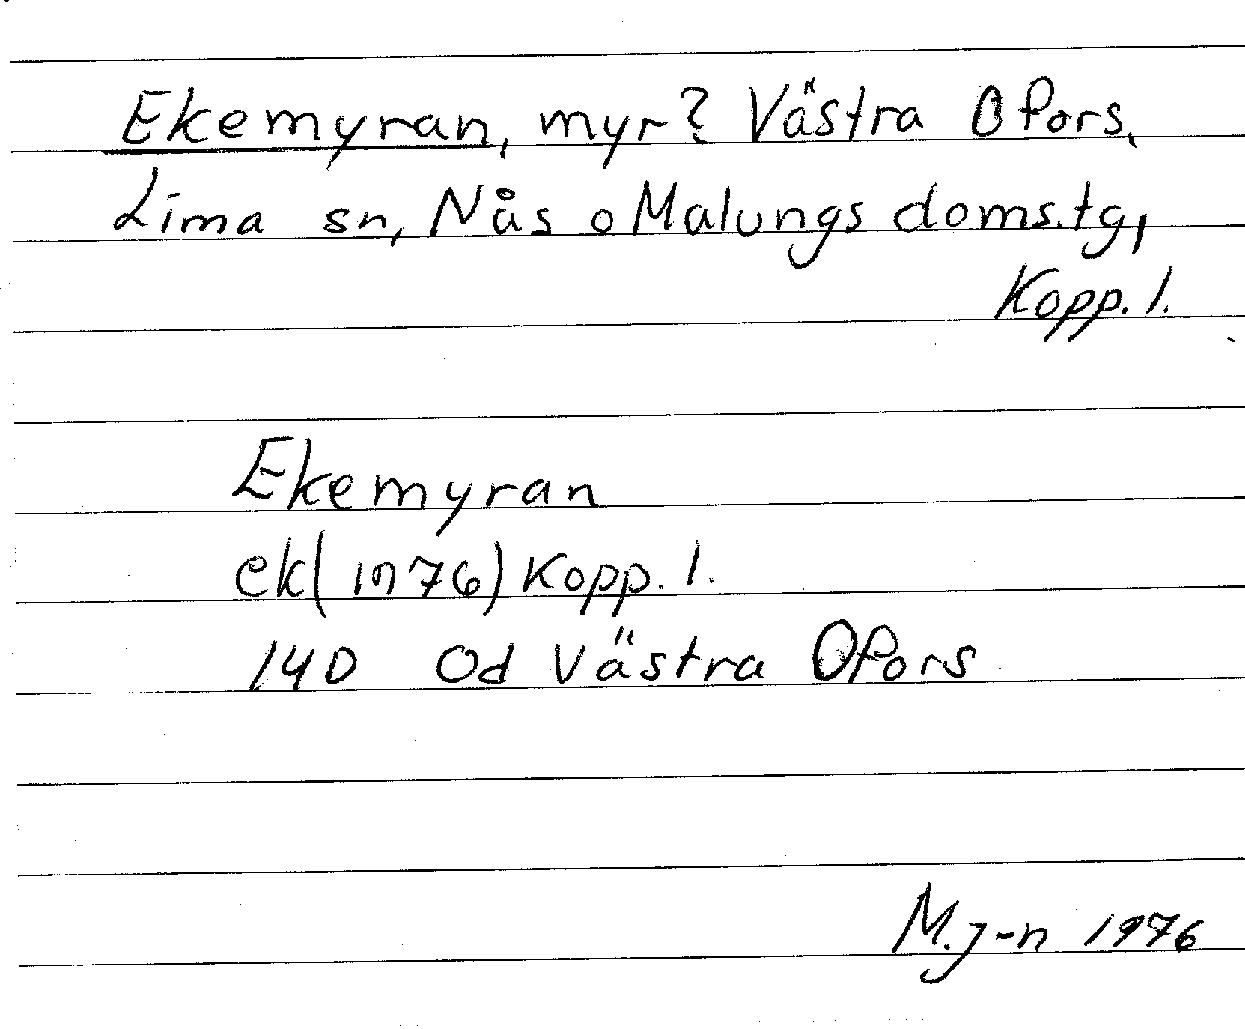 Ekemyran, myr? Västra Ofors,
Lima sn, Nås o Malungs doms.tg,
Kopp. l.
Ekemyran
ek(1976) Kopp. l.
140 Od Västra Ofors
M. J-n 1976